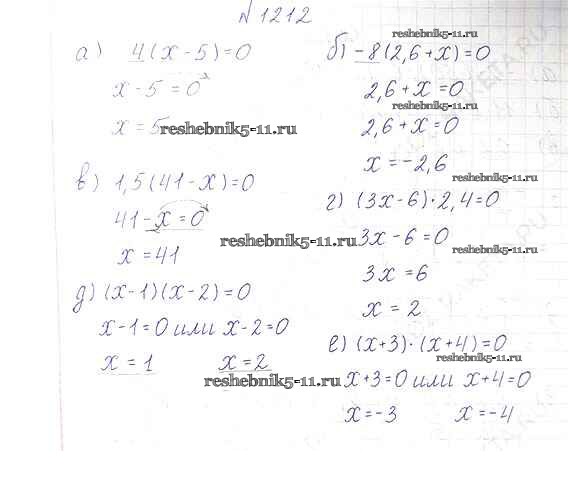 № 1212
а) 4(x-5)=0
x-5=0
x=5
reshebnik5-11.ru
б) -8(2,6+x)=0
reshebnik5-11.ru
2,6+x=0
reshebnik5-11.ru
2,6+x=0
x=-2,6
reshebnik5-11.ru
в) 1,5(41-x)=0
41-x=0
x=41
reshebnik5-11.ru
г) (3x-6)·2,4=0
3x-6=0
reshebnik5-11.ru
3x=6
x=2
д) (x-1)(x-2)=0
x-1=0 или x-2=0
x=1 x=2
reshebnik5-11.ru
е) (x+3)·(x+4)=0
reshebnik5-11.ru
x+3=0 или x+4=0
x=-3 x=-4